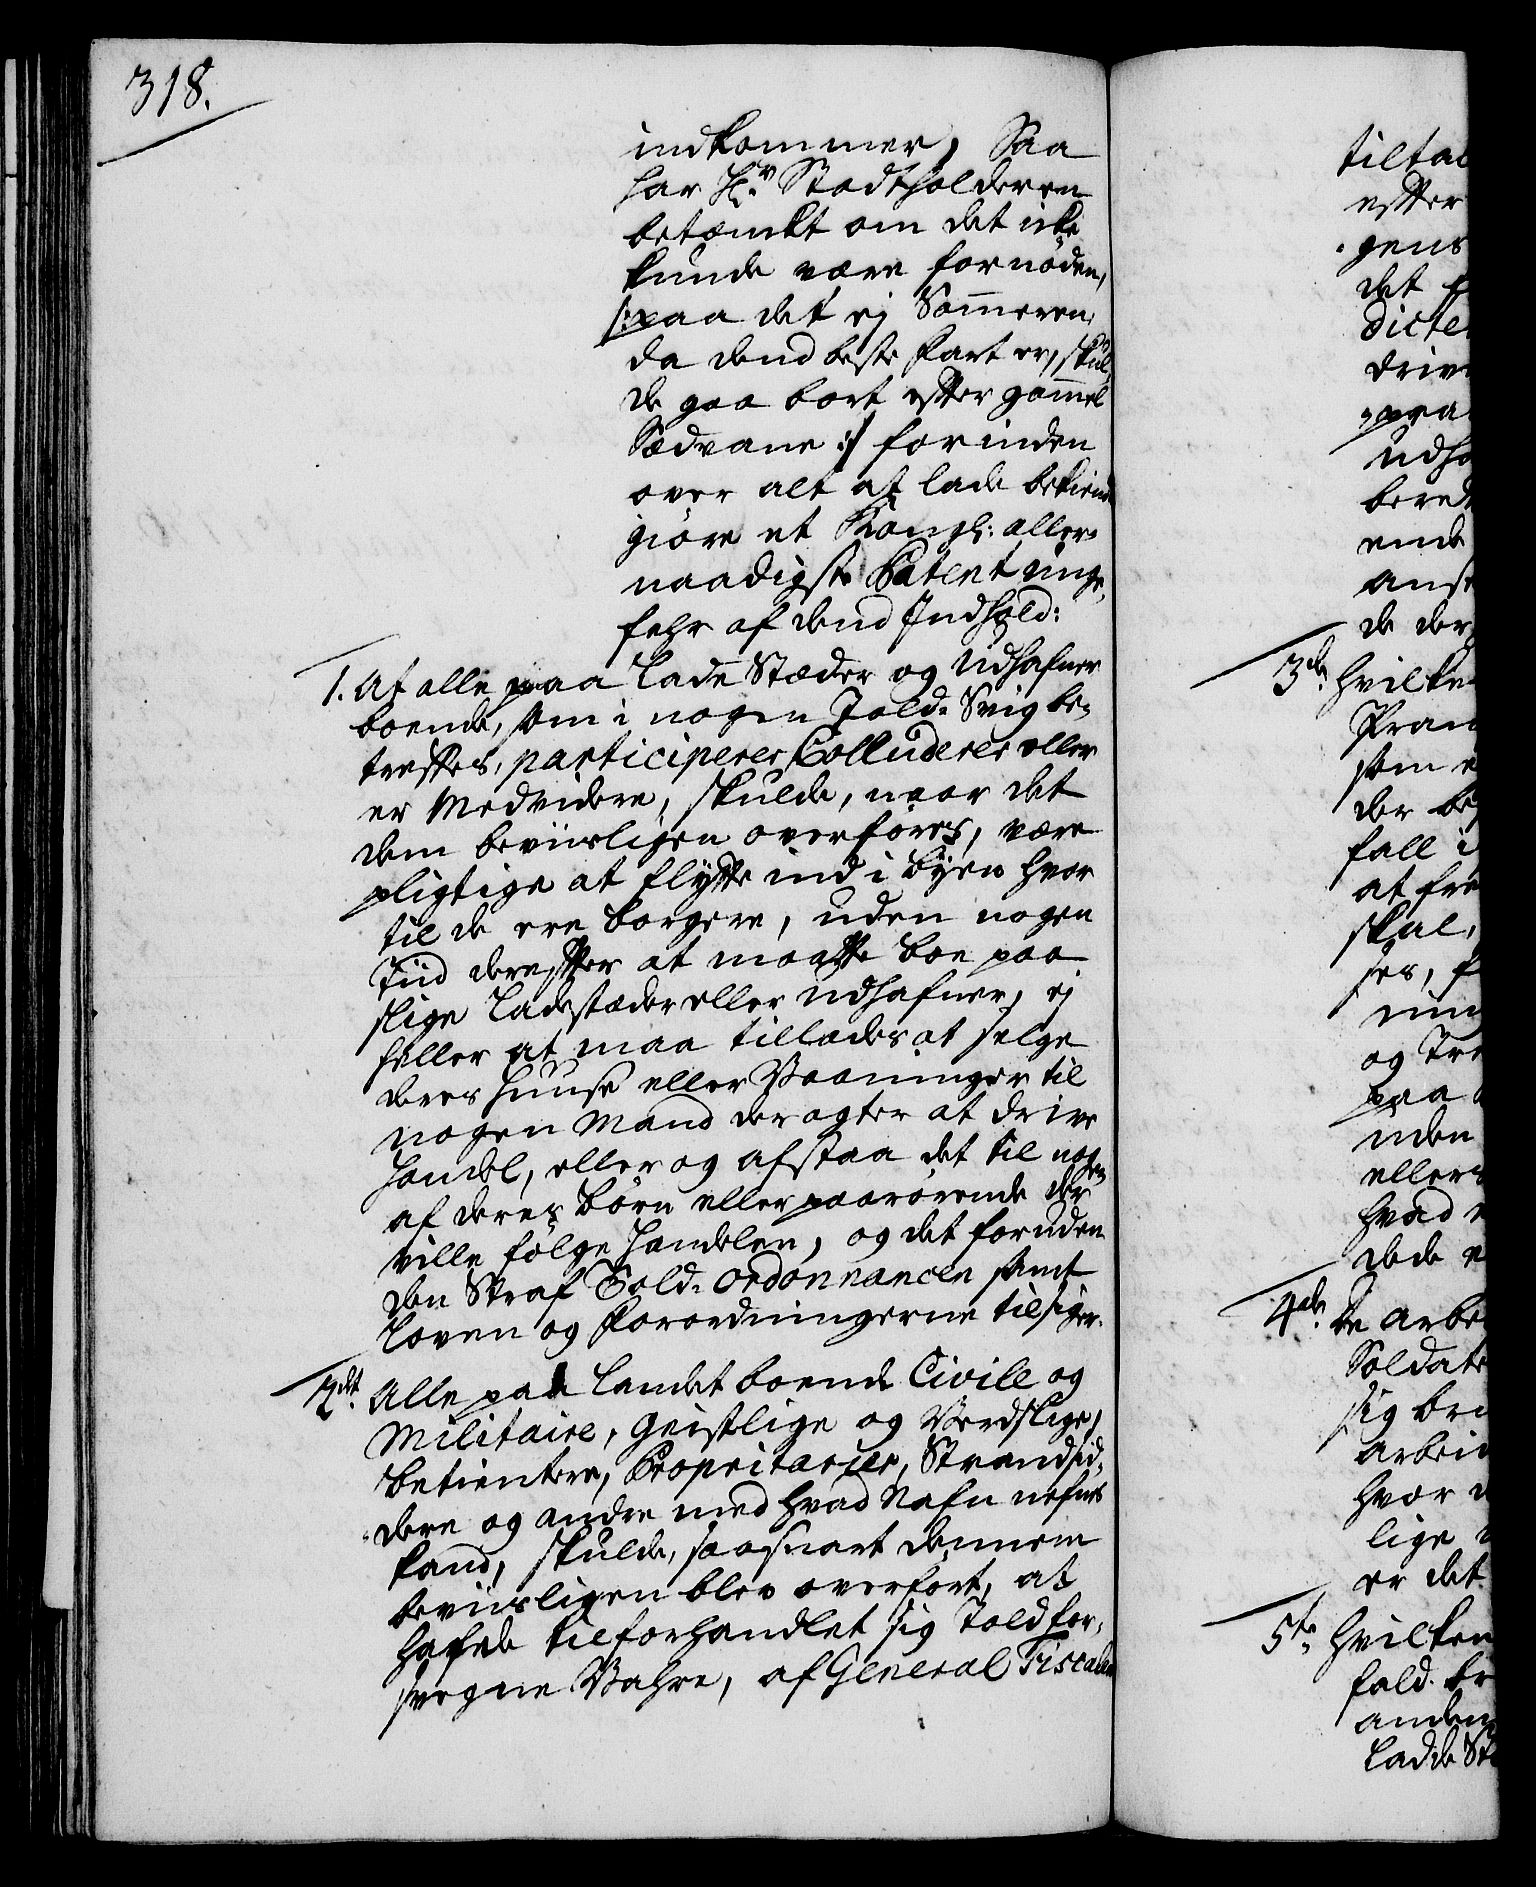 318.
indkommer, Saa
har Hr. Stadtholderen
betænkt om det icke
kunde være fornöden,
/: paa det ej Som̄eren,
da dend beste fart er, skul-
de gaa bort efter gam̄el
Sædvane :/ forinden
over alt at lade bekiendt
giöre et Kongl: aller-
naadigste Patent unge-
fehr af dend Indhold:
1. At alle paa Lade Stæder og Udhafner
boende, som i nogen Told-Svig be-
treffes, participerer, Colluderer eller
er Medvidere, skulde, naar det
dem beviisligen overföres, være
pligtige at flytte ind i Byen hvor
til de ere borgere, uden nogen
Tiid derefter at maatte boe paa
slige Ladestæder eller Udhafner, ej
heller at maa tillades at selge
deres Huuse eller Vaaninger til
nogen Mand der agter at drive
Handel, eller og afstaa det til nogen
af deres Börn eller paarörende der
ville fölge Handelen, og det foruden
den Straf Told-Ordonnancen samt
Loven og Forordningerne tilsiger.
2det Alle paa Landet boende Civile og
Militaire, Geistlige og Verdslige,
betientere, Proprietarier, Strandsid-
dere og andre med hvad Nafn nefnes
kand, skulde, saasnart dennem
beviisligen blev overfört, at
hafde tilforhandlet sig Told for-
svegne Vahre, af General Fiscalen
tiltal
efter
gens
det
dicte
driv
paa
udho
bered
ende
anse
de der
3de Hvilken
Pran
som e
der be
fall i
at fre
skal,
ses, f
ning
og Tre
paa
uden
ellers
hvad
dede
4de De arbe
Soldate
sig bri
arbeid
hvor
lige
er det
5te Hvilken
fald. br
anden
Ladde St